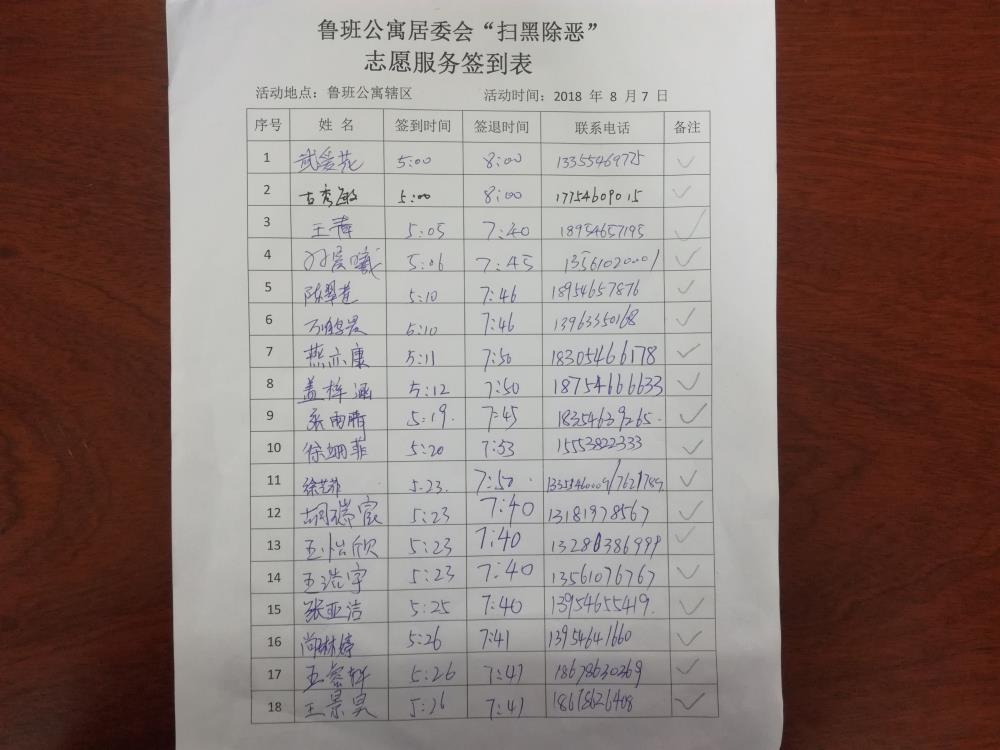 鲁班公寓居委会“扫黑除恶”
志愿服务签到表
活动地点：鲁班公寓辖区 活动时间：2018 年 8 月 7 日
序号 姓 名 签到时间 签退时间 联系电话 备注
1 武爱花 5:00 8:00 13355469725 ✓
2 古秀敏 5:00 8:00 17754609015 ✓
3 王涛 5:05 7:40 18954657195 ✓
4 5:06 7:45 13561020001 ✓
5 陈翠莲 5:10 7:46 18954657876 ✓
6 5:10 7:46 13963350168 ✓
7 燕亦康 5:11 7:50 18305466178 ✓
8 盖梓涵 5:12 7:50 18754666633 ✓
9 张雨晴 5:19. 7:45 18354639265. ✓
10 徐姗菲 5:20 7:53 15553822333 ✓
11 徐艺菲 5:23. 7:50 ✓
12 胡瑞宸 5:23 7:40 13181978567 ✓
13 王怡欣 5:23 7:40 13280386999 ✓
14 王浩宇 5:23 7:40 13561076767 ✓
15 张亚洁 5:25 7:40 13954655419. ✓
16 尚琳婷 5:26 7:41 13954641660 ✓
17 王睿轩 5:26 7:41 18678630369 ✓
18 王景昊 5:26 7:41 18678626408 ✓